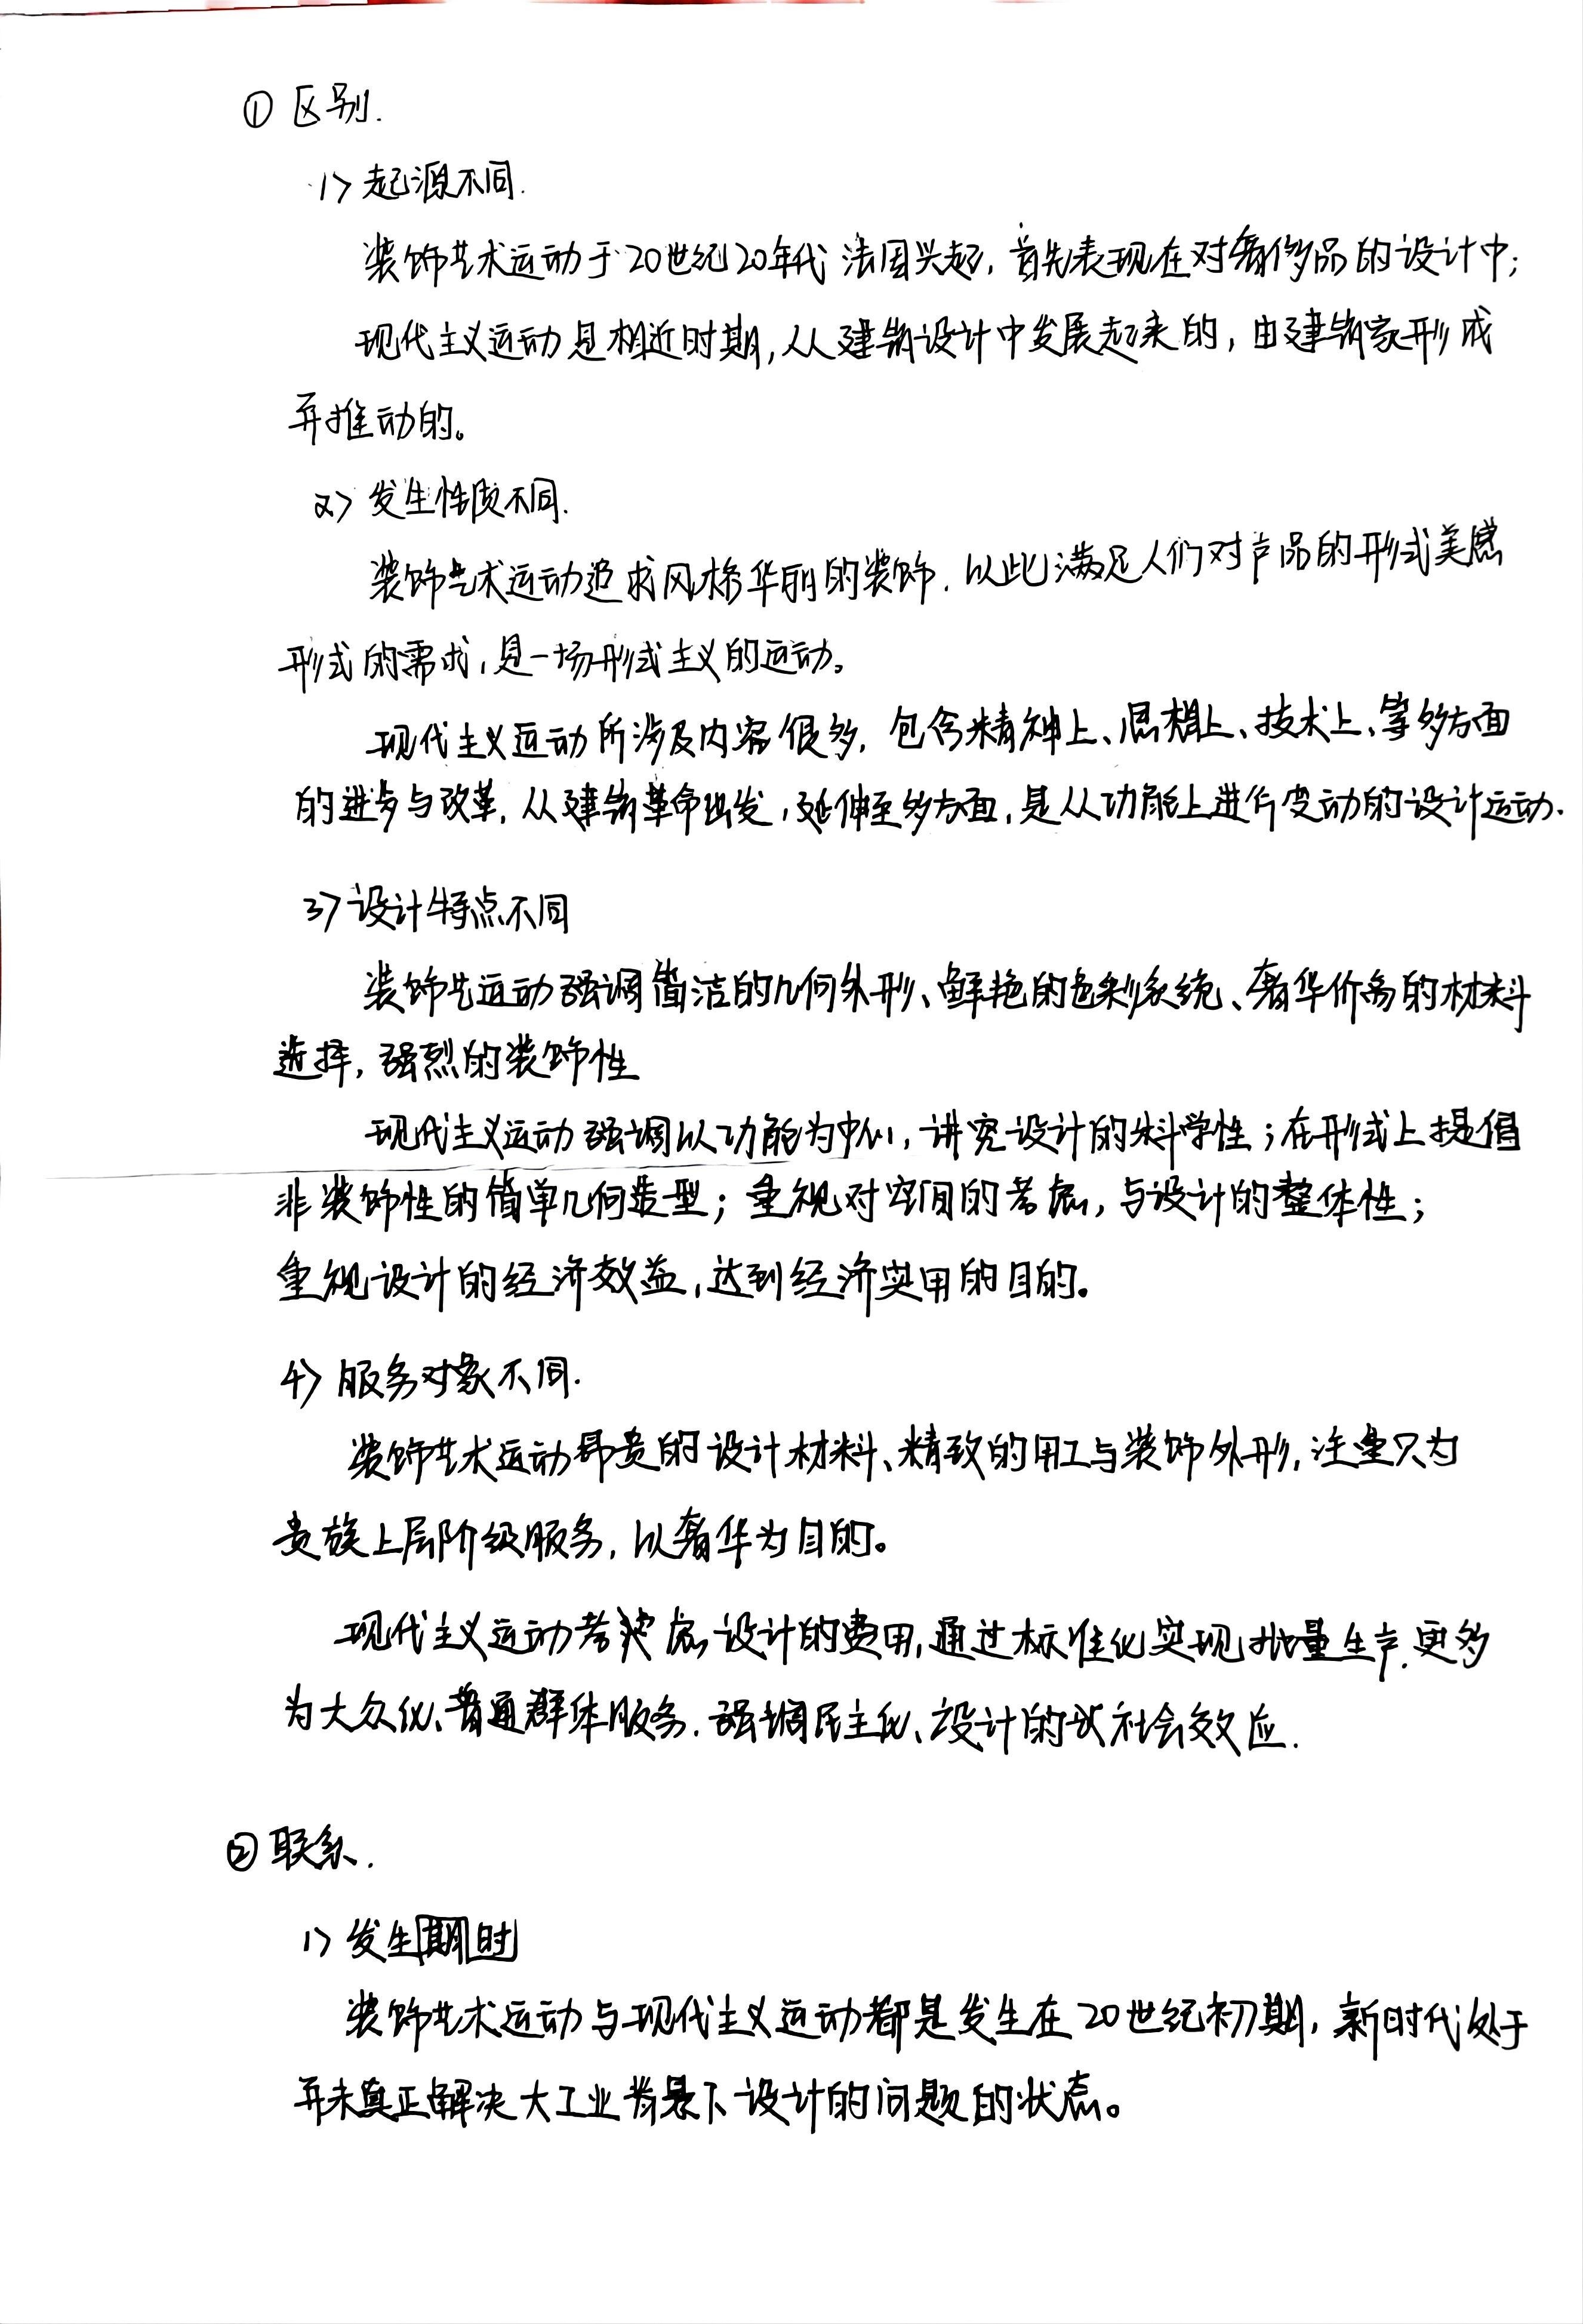 ① 区别.
1> 起源不同.
装饰艺术运动于20世纪20年代法国兴起,首先表现在对奢侈品的设计中;
现代主义运动是相近时期,从建筑设计中发展起来的,由建筑家形成
并推动的。
2> 发生性质不同.
装饰艺术运动追求风格华丽的装饰.以此满足人们对产品的形式美感
形式的需求,是一场形式主义的运动。
现代主义运动所涉及内容很多,包含精神上、思想上、技术上、等多方面
的进步与改革,从建筑革命出发,延伸至多方面,是从功能上进行变动的设计运动.
3> 设计特点不同
装饰艺运动强调简洁的几何外形、鲜艳的色彩系统、奢华价高的材料
选择,强烈的装饰性
现代主义运动强调以功能为中心,讲究设计的科学性;在形式上提倡
非装饰性的简单几何造型;重视对空间的考虑,与设计的整体性;
重视设计的经济效益,达到经济实用的目的。
4> 服务对象不同.
装饰艺术运动昂贵的设计材料、精致的用工与装饰外形,注重只为
贵族上层阶级服务,以奢华为目的。
现代主义运动考虑设计的费用,通过标准化实现批量生产.更多
为大众化、普通群体服务.强调民主化、设计的社会效应.
② 联系.
1> 发生期时
装饰艺术运动与现代主义运动都是发生在20世纪初期,新时代处于
并未真正解决大工业背景下设计的问题的状态。